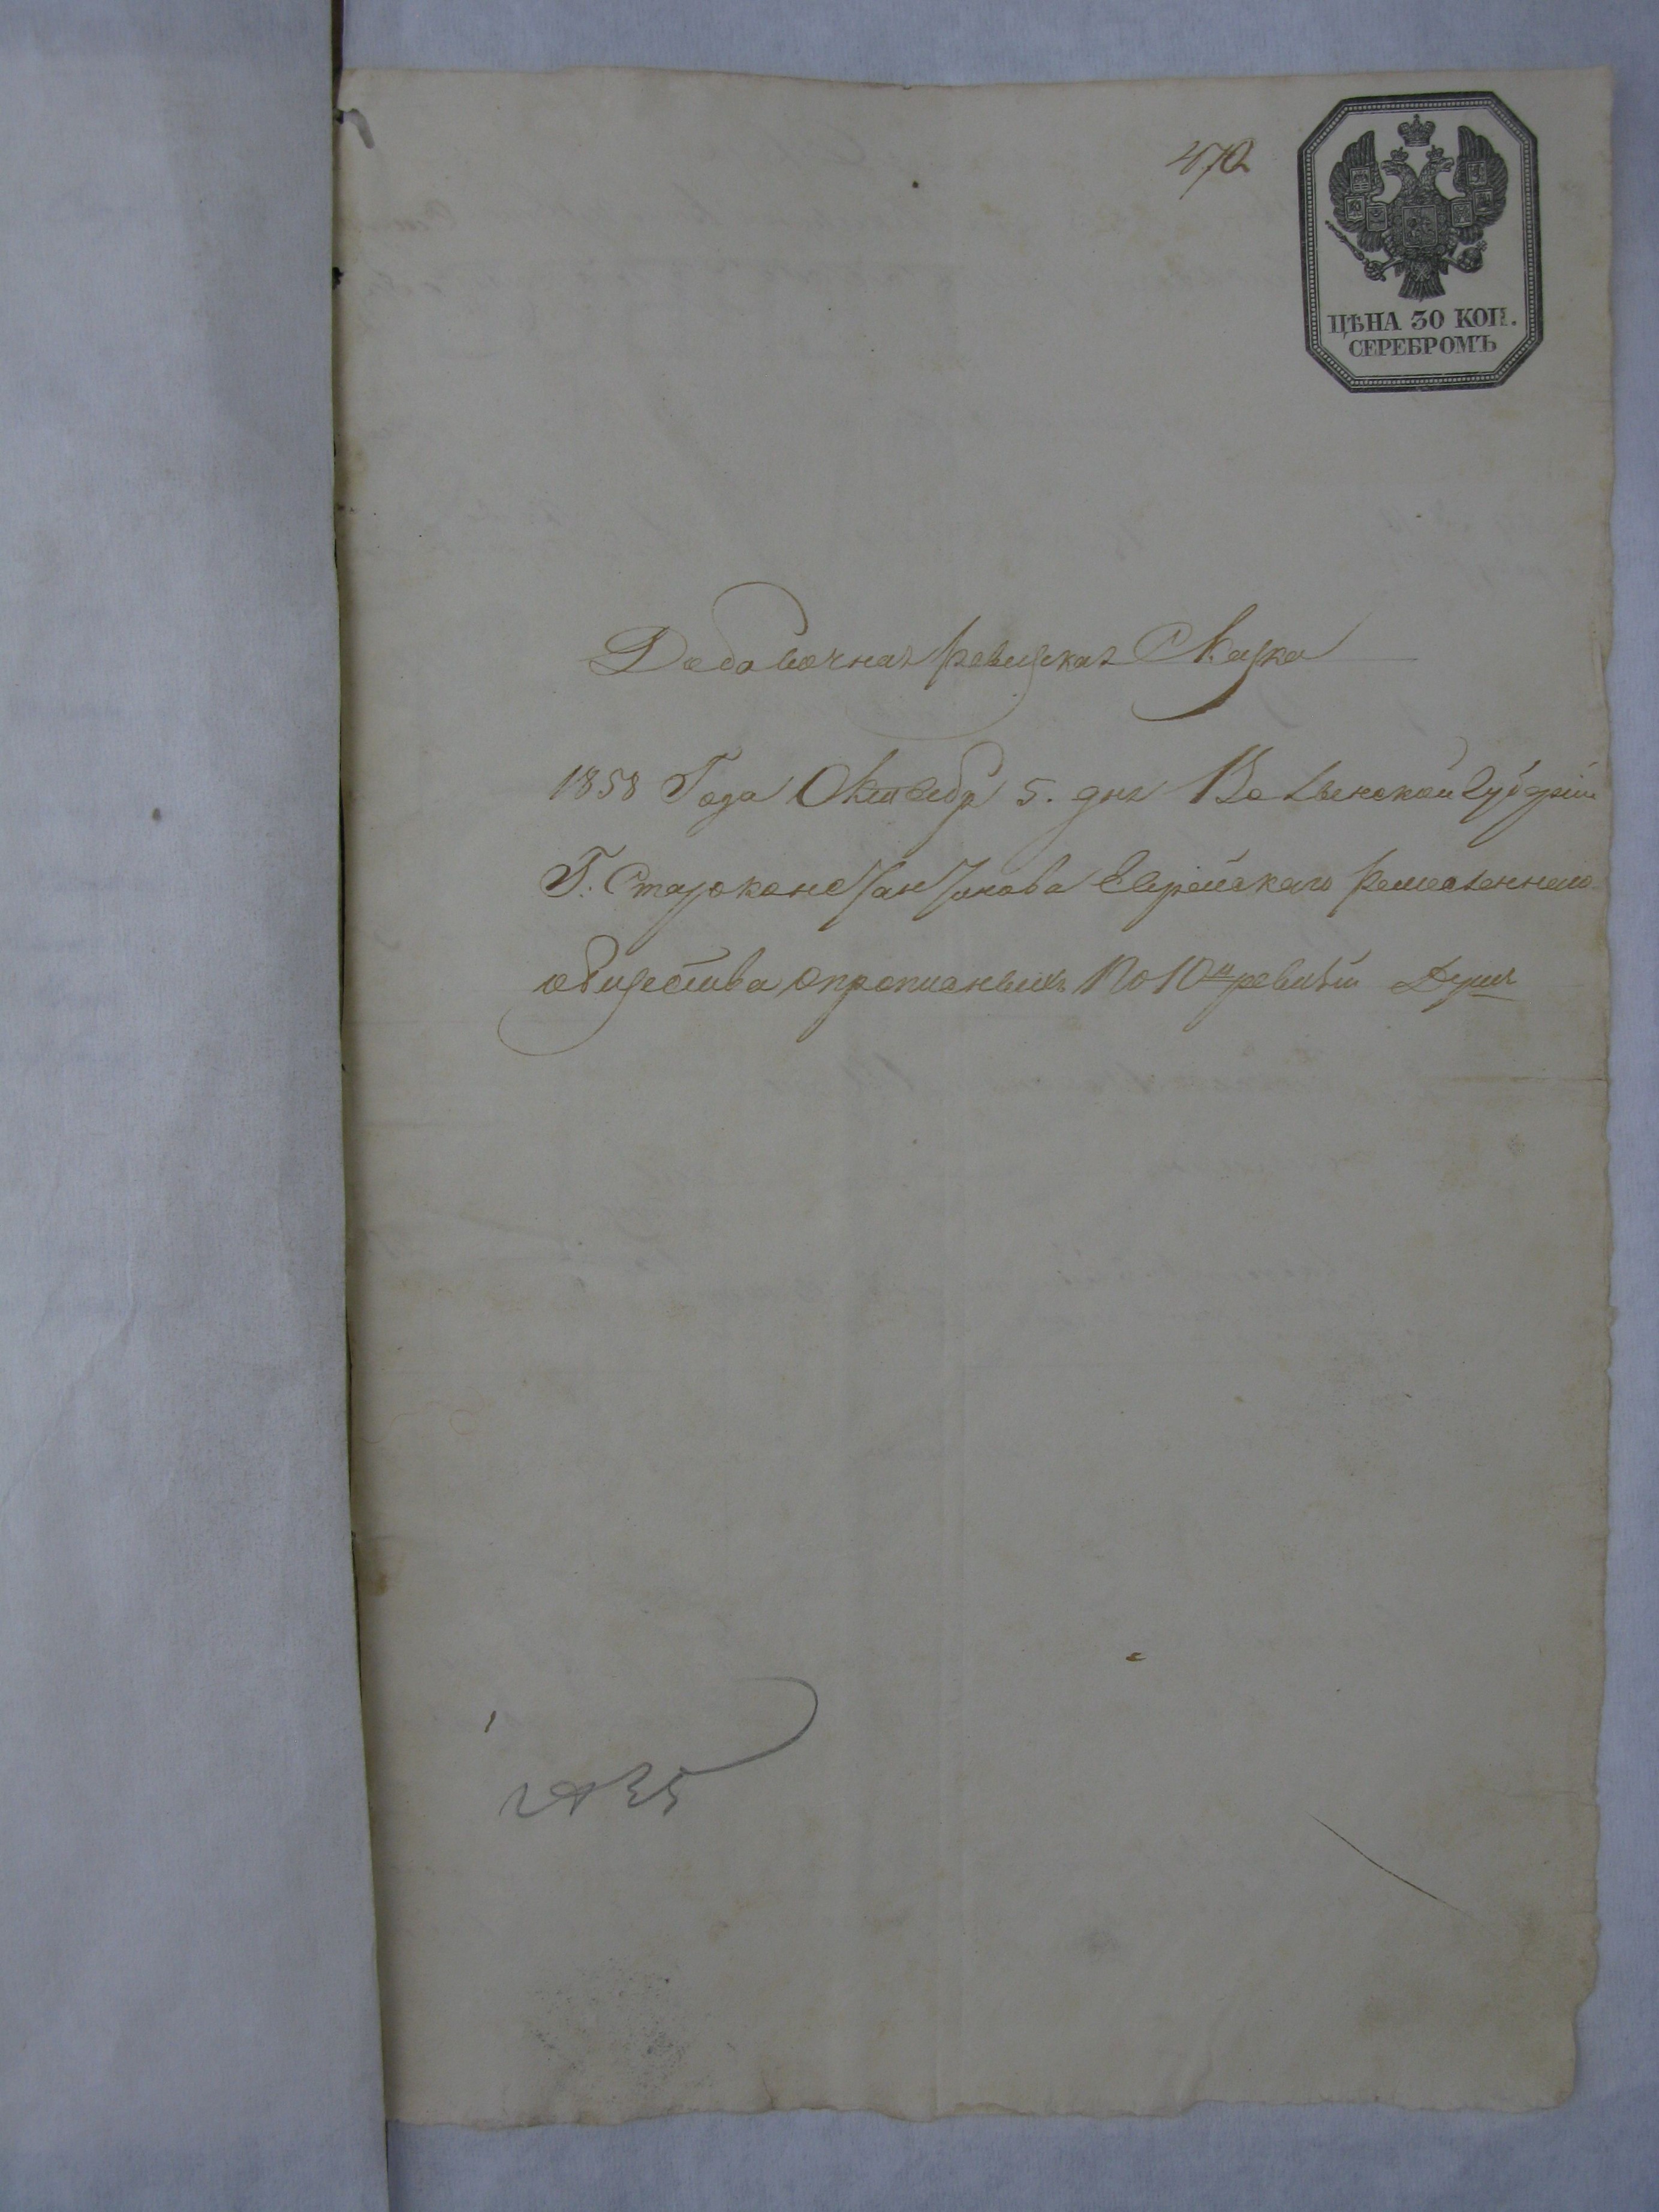 470
ЦѢНА 30 КОП.
СЕРЕБРОМЪ
Добавочная ревизская Сказка
1858 Года Октября 5. дня Волынской Губернии
Г. Староконстантинова Еврейского ремесленного
общества опрописныхъ По 10й ревизіи Душ